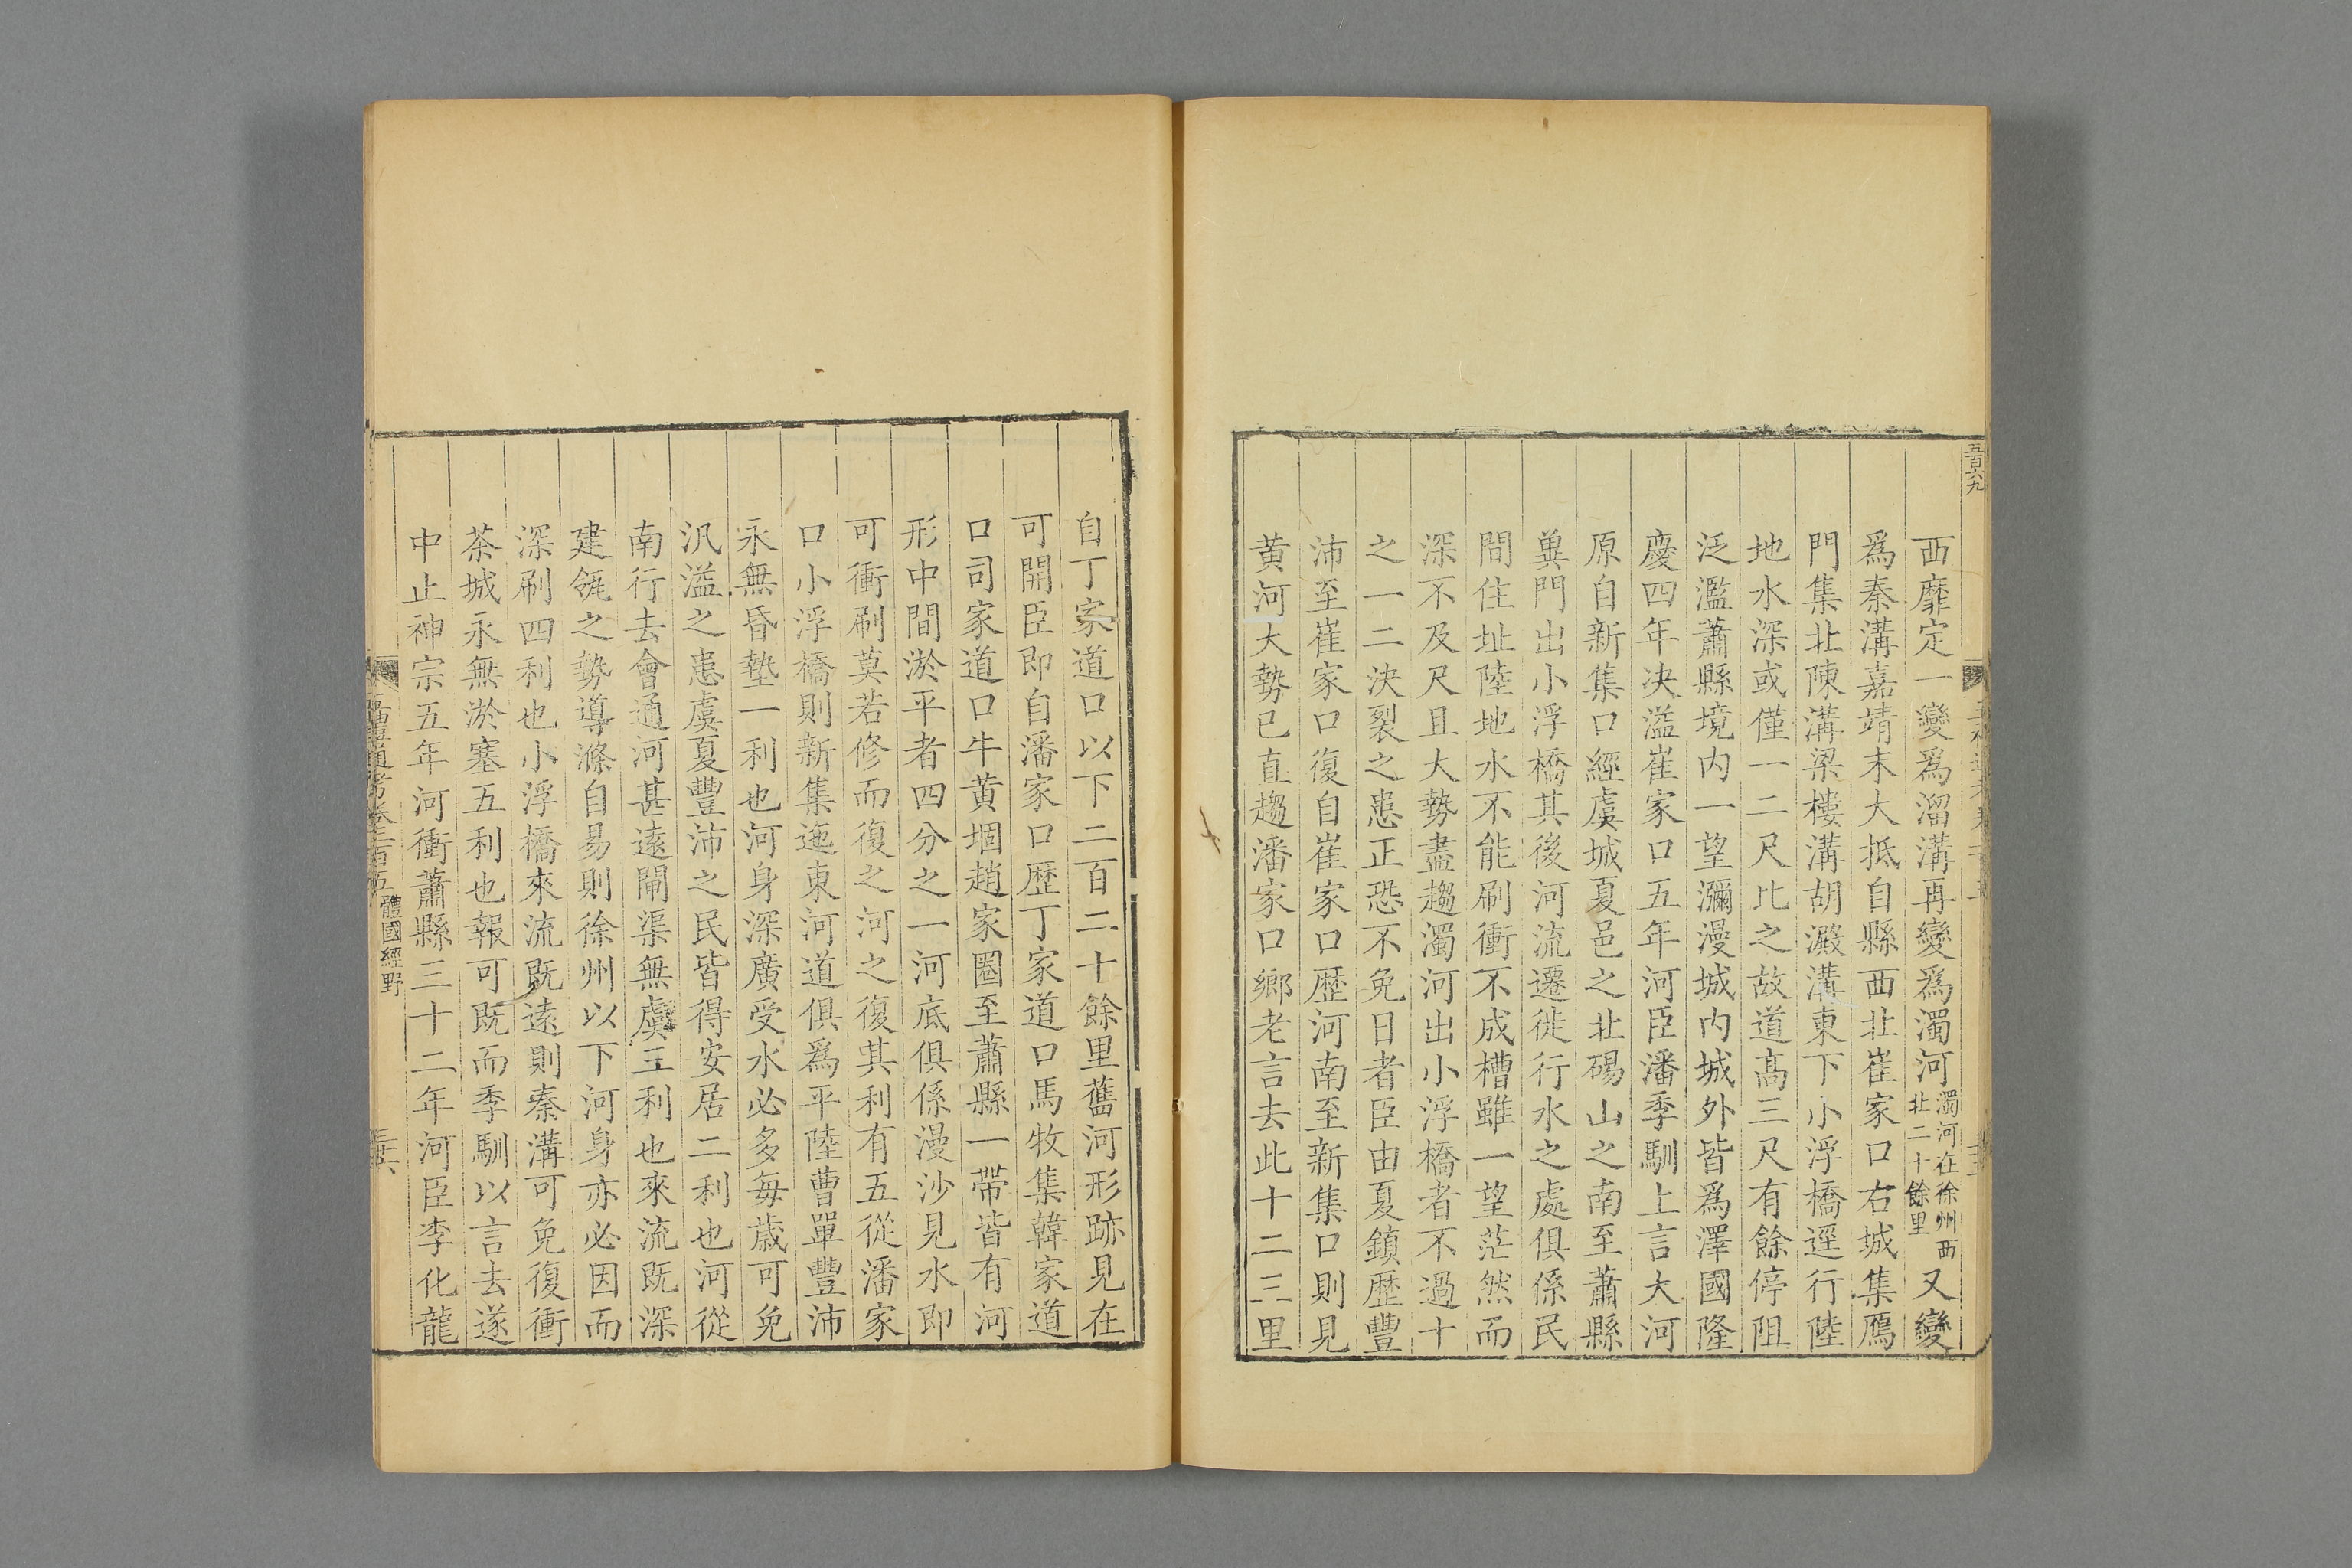 五百六九
西靡定一變爲溜溝再變爲濁河濁河在徐州西北二十餘里又變
爲秦溝嘉靖末大抵自縣西北崔家口右城集鴈
門集北陳溝梁樓溝胡澱溝東下小浮橋逕行陸
地水深或僅一二尺比之故道高三尺有餘停阻
泛濫蕭縣境内一望瀰漫城内城外皆爲澤國隆
慶四年决溢崔家口五年河臣潘季馴上言大河
原自新集口經虞城夏邑之北碭山之南至蕭縣
薊門出小浮橋其後河流遷徙行水之處俱係民
間住址陸地水不能刷衝不成槽雖一望茫然而
深不及尺且大勢盡趨濁河出小浮橋者不過十
之一二決裂之患正恐不免日者臣由夏鎮歷豐
沛至崔家口復自崔家口歷河南至新集口則見
黄河大勢已直趨潘家口鄉老言去此十二三里
自丁家道口以下二百二十餘里舊河形跡見在
可開臣即自潘家口歷丁家道口馬牧集韓家道
口司家道口牛黄堌趙家圈至蕭縣一帶皆有河
形中間淤平者四分之一河底俱係漫沙見水即
可衝刷莫若修而復之河之復其利有五從潘家
口小浮橋則新集迤東河道俱爲平陸曹單豐沛
永無昏墊一利也河身深廣受水必多每歲可免
汎溢之患虞夏豐沛之民皆得安居二利也河從
南行去會通河甚遠閘渠無虞三利也來流既深
建瓴之勢導滌自易則徐州以下河身亦必因而
深刷四利也小浮橋來流既遠則秦溝可免復衝
茶城永無淤塞五利也報可既而季馴以言去遂
中止神宗五年河衝蕭縣三十二年河臣李化龍
五禮通考卷二百五 體國經野